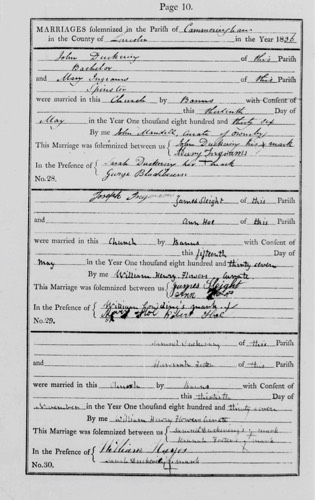 Page 10.
MARRIAGES solemnized in the Parish of Cammeringham
in the County of Lincoln in the Year 1836
John Duckering of this Parish
Bachelor
and Mary Ingrams of this Parish
Spinster
were married in this Church by Banns with Consent of
this thirteenth Day of
May in the Year One thousand eight hundred and thirty six
By me John Mandell, Curate of
This Marriage was solemnized between us John Duckering his x mark
Mary Ingrams
In the Presence of Sarah Duckering her x mark
George Blackburn
No.28.
Joseph James Sleight of this Parish
and Ann Hoe of this Parish
were married in this Church by Banns with Consent of
this fifteenth Day of
May in the Year One thousand eight hundred and thirty seven
By me William Henry Flowers Curate
This Marriage was solemnized between us James Sleight
Ann Hoe
In the Presence of William mark x
Hoe Robert Hoe
No.29.
Samuel Duckering of this Parish
and Hannah of this Parish
were married in this Church by Banns with Consent of
this thirtieth Day of
November in the Year One thousand eight hundred and thirty seven
By me William Henry Flowers Curate
This Marriage was solemnized between us Samuel Duckering's x mark
Hannah x mark
In the Presence of William
Sarah Duckering x mark
No.30.